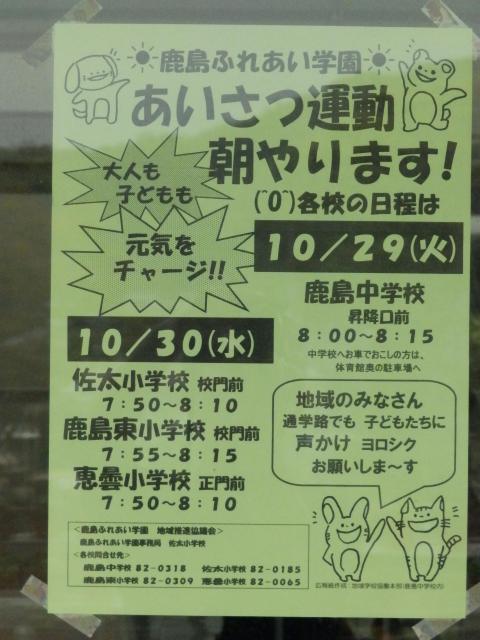 鹿島ふれあい学園
あいさつ運動
朝やります!
大人も
子どもも
元気を
チャージ!!
(^O^)各校の日程は
10/29(火)
鹿島中学校
昇降口前
8:00〜8:15
中学校へお車でおこしの方は、
体育館奥の駐車場へ
10/30(水)
佐太小学校 校門前
7:50〜8:10
鹿島東小学校 校門前
7:55〜8:15
恵曇小学校 正門前
7:50〜8:10
地域のみなさん
通学路でも 子どもたちに
声かけ ヨロシク
お願いしま〜す
<鹿島ふれあい学園 地域推進協議会>
鹿島ふれあい学園事務局 佐太小学校
<各校問合せ先>
鹿島中学校 82-0318 佐太小学校 82-0185
鹿島東小学校 82-0309 恵曇小学校 82-0065
広報紙作成:地域学校協働本部(鹿島中学校内)